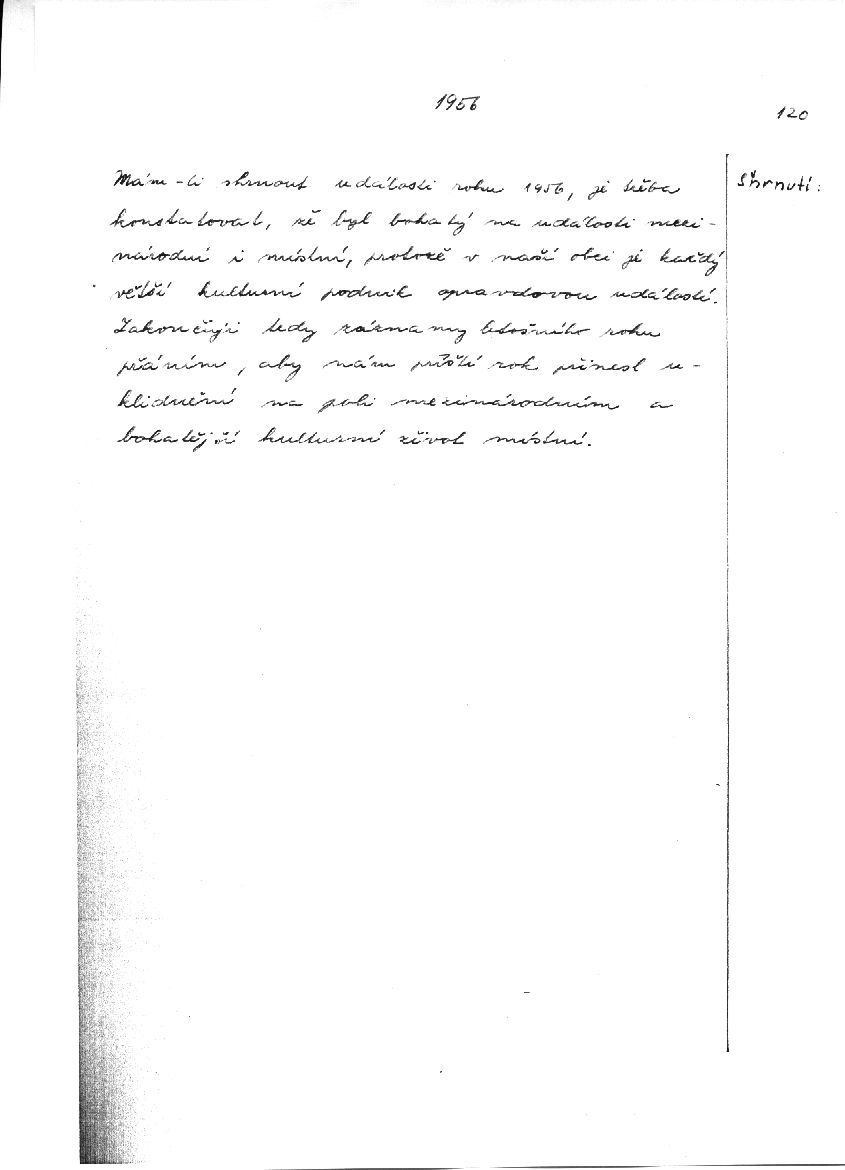 1956
120
Shrnutí:
Mám-li shrnout události roku 1956, je třeba
konstatovat, že byl bohatý na události mezi-
národní i místní, protože v naší obci je každý
větší kulturní podnik opravdovou událostí.
Zakončuji tedy záznamy letošního roku
přáním, aby nám příští rok přinesl u-
klidnění na poli mezinárodním a
bohatější kulturní život místní.